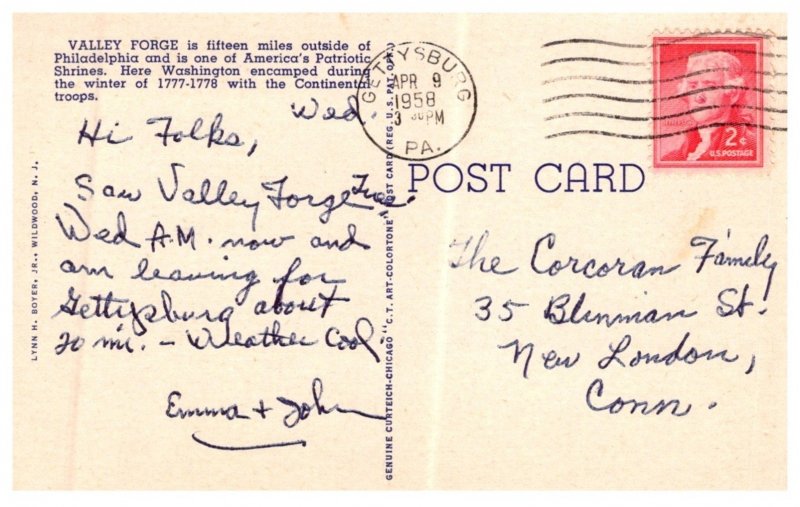 VALLEY FORGE is fifteen miles outside of
Philadelphia and is one of America's Patriotic
Shrines. Here Washington encamped during
the winter of 1777-1778 with the Continental
troops.
Wed.
Hi Folks,
Saw Valley Forge Tues.
Wed A.M. now and
am leaving for
Gettysburg about
20 mi. - Weather Cool.
Emma + John
LYNN H. BOYER, JR., WILDWOOD, N. J.
GENUINE CURTEICH-CHICAGO "C.T. ART-COLORTONE" POST CARD (REG. U.S. PAT. OFF.)
GETTYSBURG
APR 9
1958
PM
PA.
2¢
U.S. POSTAGE
POST CARD
The Corcoran Family
35 Blinman St.
New London,
Conn.